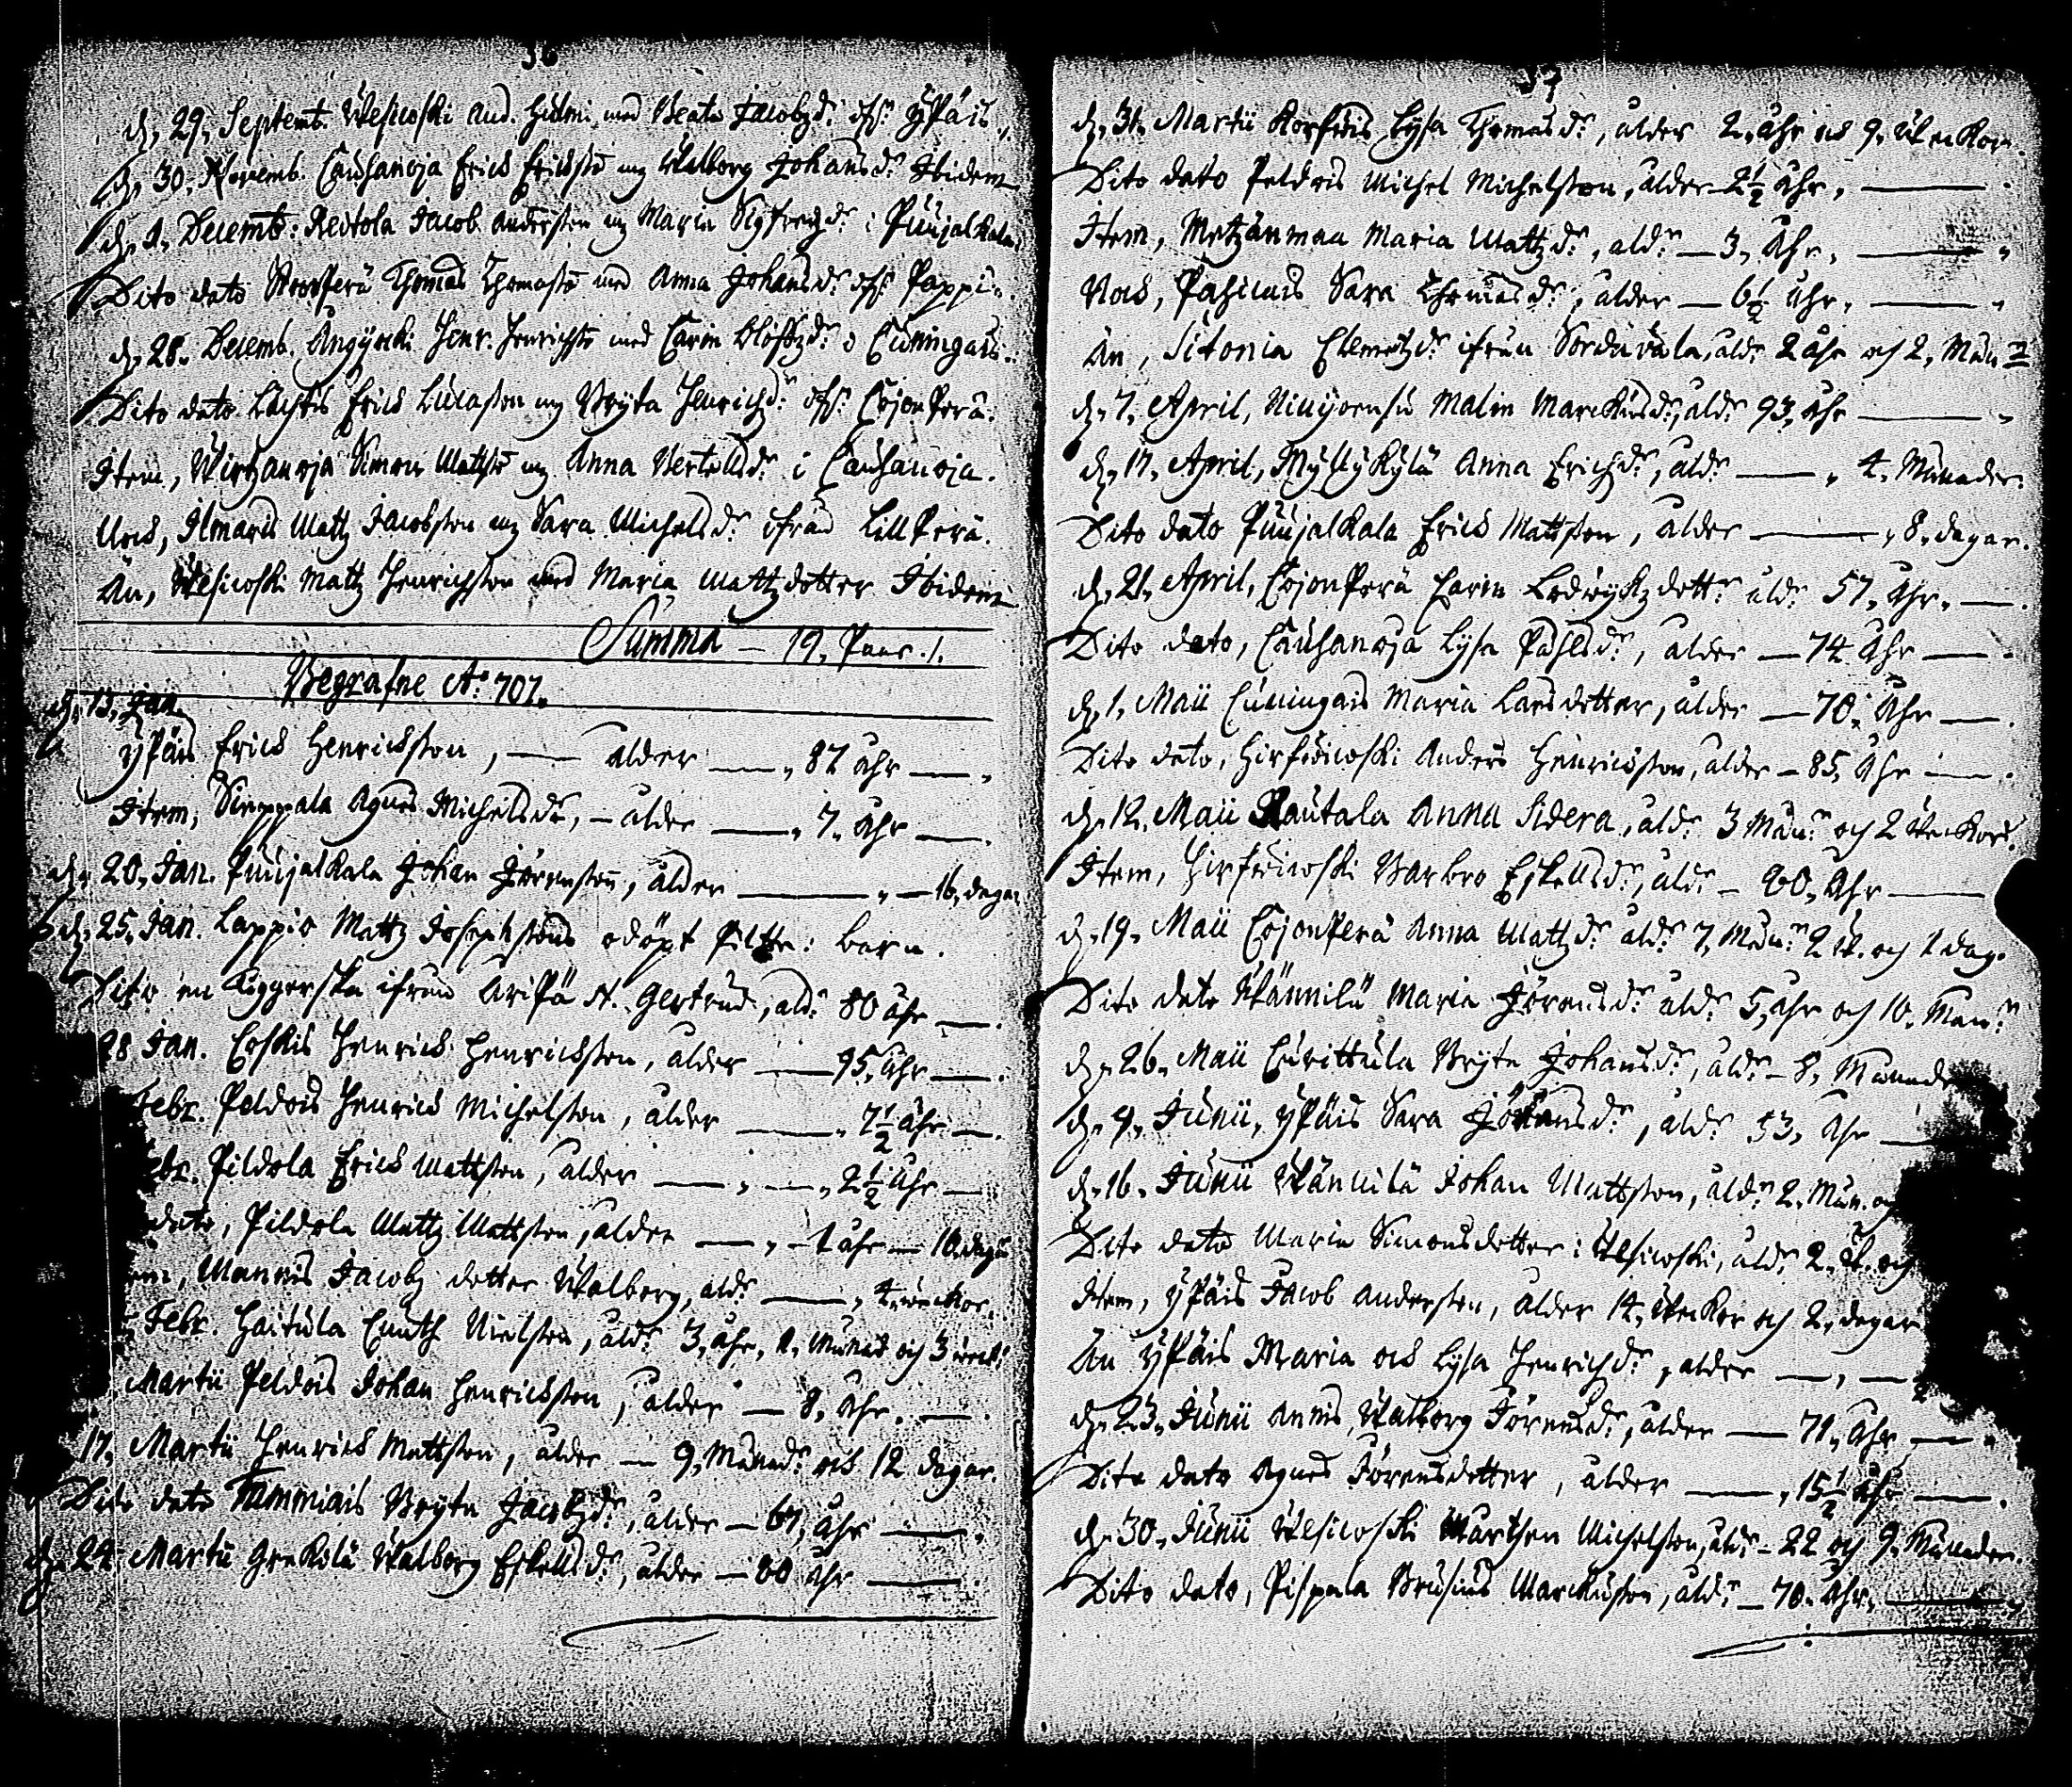 36
d. 29. Septemb. Wesikoski And. Hinders. med Beata Jacobzdr. ifr. Ypäis.
d. 30. Novemb. Cauhanoja Erick Ericksson mz Walborg Johansdr. Ibidem
d. 1. Decemb. Reitola Jacob Andersson mz Maria Sigfredzdr. i Puujalkala.
Dito dato Thomas Thomasson med Anna Johansdr. ifr. Pappi
d. 28. Decemb. Henr. Henrichsson med Carin Oloffzdr. i Cuningais.
Dito dato Lachtis Erick Lucasson mz Bryta Henrichzdr. ifr. Cojonperä.
Item, Wirtzanoja Simon Mattsson mz Anna Bertellsdr. i Cauhanoja.
Noch, Ilmaris Mattz Jacobsson mz Sara Michelsdr. ifrån Lillperä.
Än, Wesikoski Mattz Henrichsson med Maria Mattzdotter Ibidem
Summa — 19. Paar ./.
Begrafne Ao. 707.
d. 13. Jan.
Ypäis Erick Henricksson, — ålder — 87 åhr —
Item, Sieppala Agnes Michelsdr, — ålder — 7. åhr —
d. 20. Jan. Puujalkala Johan Jörensson, ålder — 16. dagar
d. 25. Jan. Lappio Mattz Josephssons odöpt Pilte: barn.
Dito en Tiggerska ifrån Aripä N. Gertrud, åldr. 80 åhr —
28 Jan. Coskis Henrick Henricksson, ålder — 95. åhr —
Febr. Peldois Henrick Michelsson, ålder — 7½ åhr —
ebr. Pildola Erick Mattsson, ålder — 2½ åhr —
dato, Pildola Mattz Mattsson, ålder — 1 åhr — 10. dagar
em, Mannis Jacobz dotter Walborg, åldr. — 4. wickor.
Febr. Haitula Cnuth Nielsson, åldr. 3. åhr, 1. Månad och 3 weck:
Martii Peldois Johan Henricksson, ålder — 8. åhr. —
17. Martii Henrick Mattsson, ålder — 9. Månadr. och 12 dagar.
Dito dato Tammiais Bryta Jacobzdr., ålder — 67. åhr —
d. 24. Martii Grekilä Walborg Eskellsdr., ålder — 80 åhr —
37
d. 31. Martii Korfwis Lysa Thomasdr., ålder 2. åhr och 9. Weckor.
Dito dato Peldois Michel Michelsson, ålder 2½ åhr, —
Item, Metzänmaa Maria Mattzdr., åldr. — 3. åhr, —
Noch, Sara Thomasdr., ålder — 6½ åhr, —
Än, Sitonia Clemetzdr. ifrån Sordavala, åldr. 2 åhr och 2. Månr
d. 7. April, Malin Marckusdr., åldr. 93. åhr —
d. 17. April, Myllykylä Anna Erichzdr., åldr. — 4. Månader.
Dito dato Puujalkala Erick Mattsson, ålder — 8. dagar.
d. 21. April, Cojonperä Carin Lodwykzdottr. åldr. 57. åhr. —
Dito dato, Cauhanoja Lysa Påhlsdr., ålder — 74 åhr —
d. 1. Maii Cuningais Maria Larsdotter, ålder — 70. åhr —
Dito dato, Hirfwikoski Anders Henricksson, ålder — 85. åhr —
d. 12. Maii Rautala Anna Sidera, åldr. 3 Månr. och 2 Weckor.
Item, Hirfwikoski Barbro Eskellsdr., åldr. — 90. åhr —
d. 19. Maii Cojonperä Anna Mattzdr. åldr. 7. Månr. 2 W. och 1 dag.
Dito dato Wännilä Maria Jöransdr. åldr. 5. åhr och 10. Månr.
d. 26. Maii Curittula Bryta Johansdr., åldr. — 8. Månade
d. 9. Junii, Ypäis Sara Johansdr., åldr. 53. åhr —
d. 16. Junii Wännilä Johan Mattsson, åldr. 2. Mån. och
Dito dato Maria Simonsdotter i Wesikoski, åldr. 2. W. och
Item, Ypäis Jacob Andersson, ålder 14. Weckor och 2. dagar
Än Ypäis Maria och Lysa Henrichdr., ålder —
d. 23. Junii Annis Walborg Jörensdr., ålder — 71. åhr —
Dito dato Agnes Jörensdotter, ålder — 15½ åhr —
d. 30. Junii Wesikoski Marthen Michelsson, åldr. — 22 och 9. Månader.
Dito dato, Pispala Brusius Marckusson, åldr. — 70. åhr. —